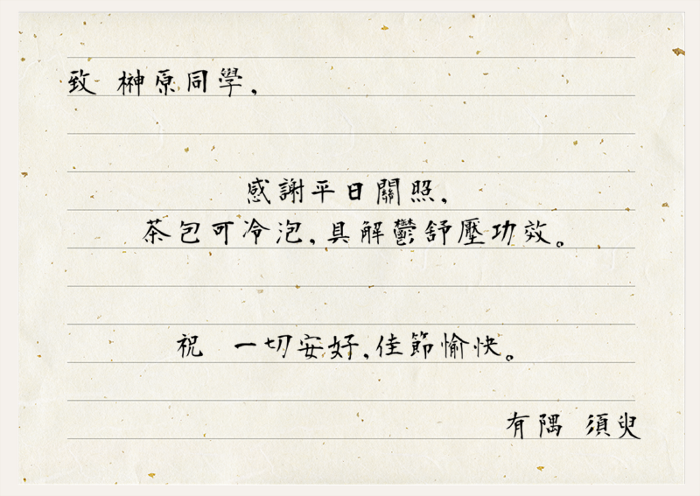 致 榊原同學,
感謝平日關照,
茶包可冷泡,具解鬱舒壓功效。
祝 一切安好,佳節愉快。
有隅 須臾